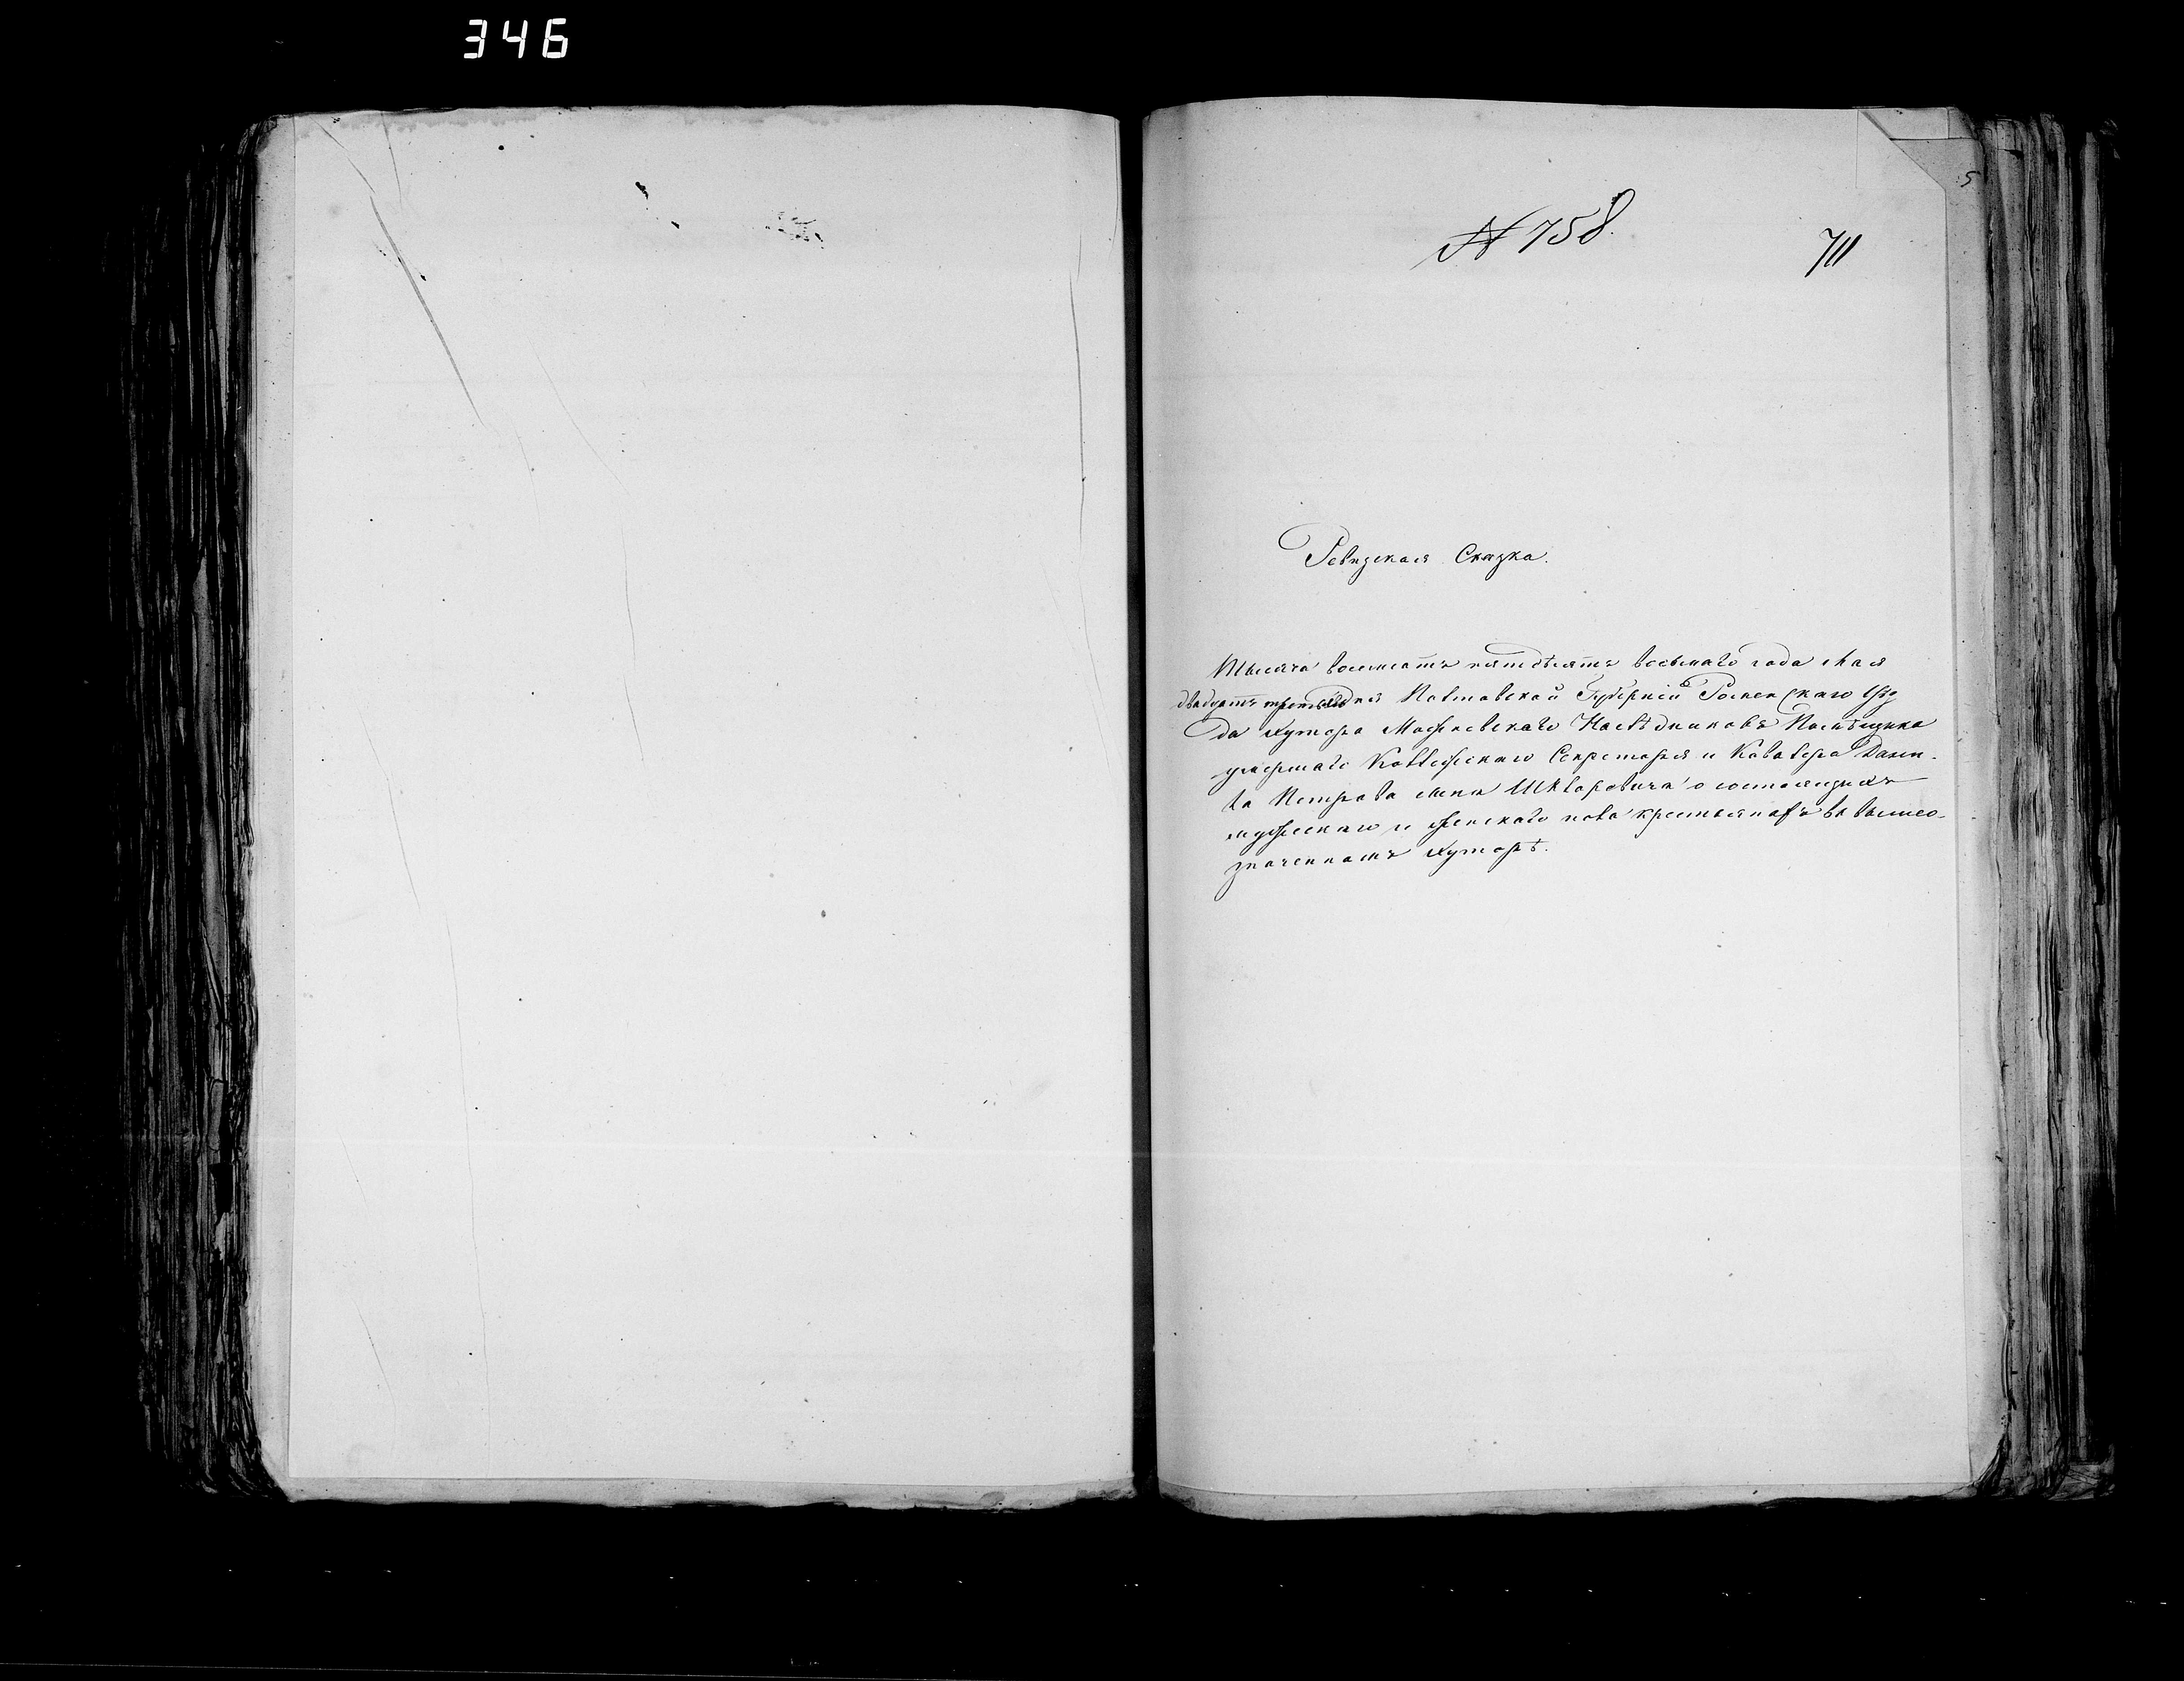 346
№ 758.
711
5
Ревизская Сказка.
Тысяча восемсотъ пятдесятъ восьмаго года Мая
двадцать третьяго дня Полтавской Губерніи Роменскаго уѣз
да хутора Наслѣдниковъ Помѣщика
умершаго Коллежскаго Секретаря и Кавалера Дани-
ла Петрова сына о состоящихъ
мужескаго и женскаго пола крестьянахъ въ вышео-
значенномъ хуторѣ.